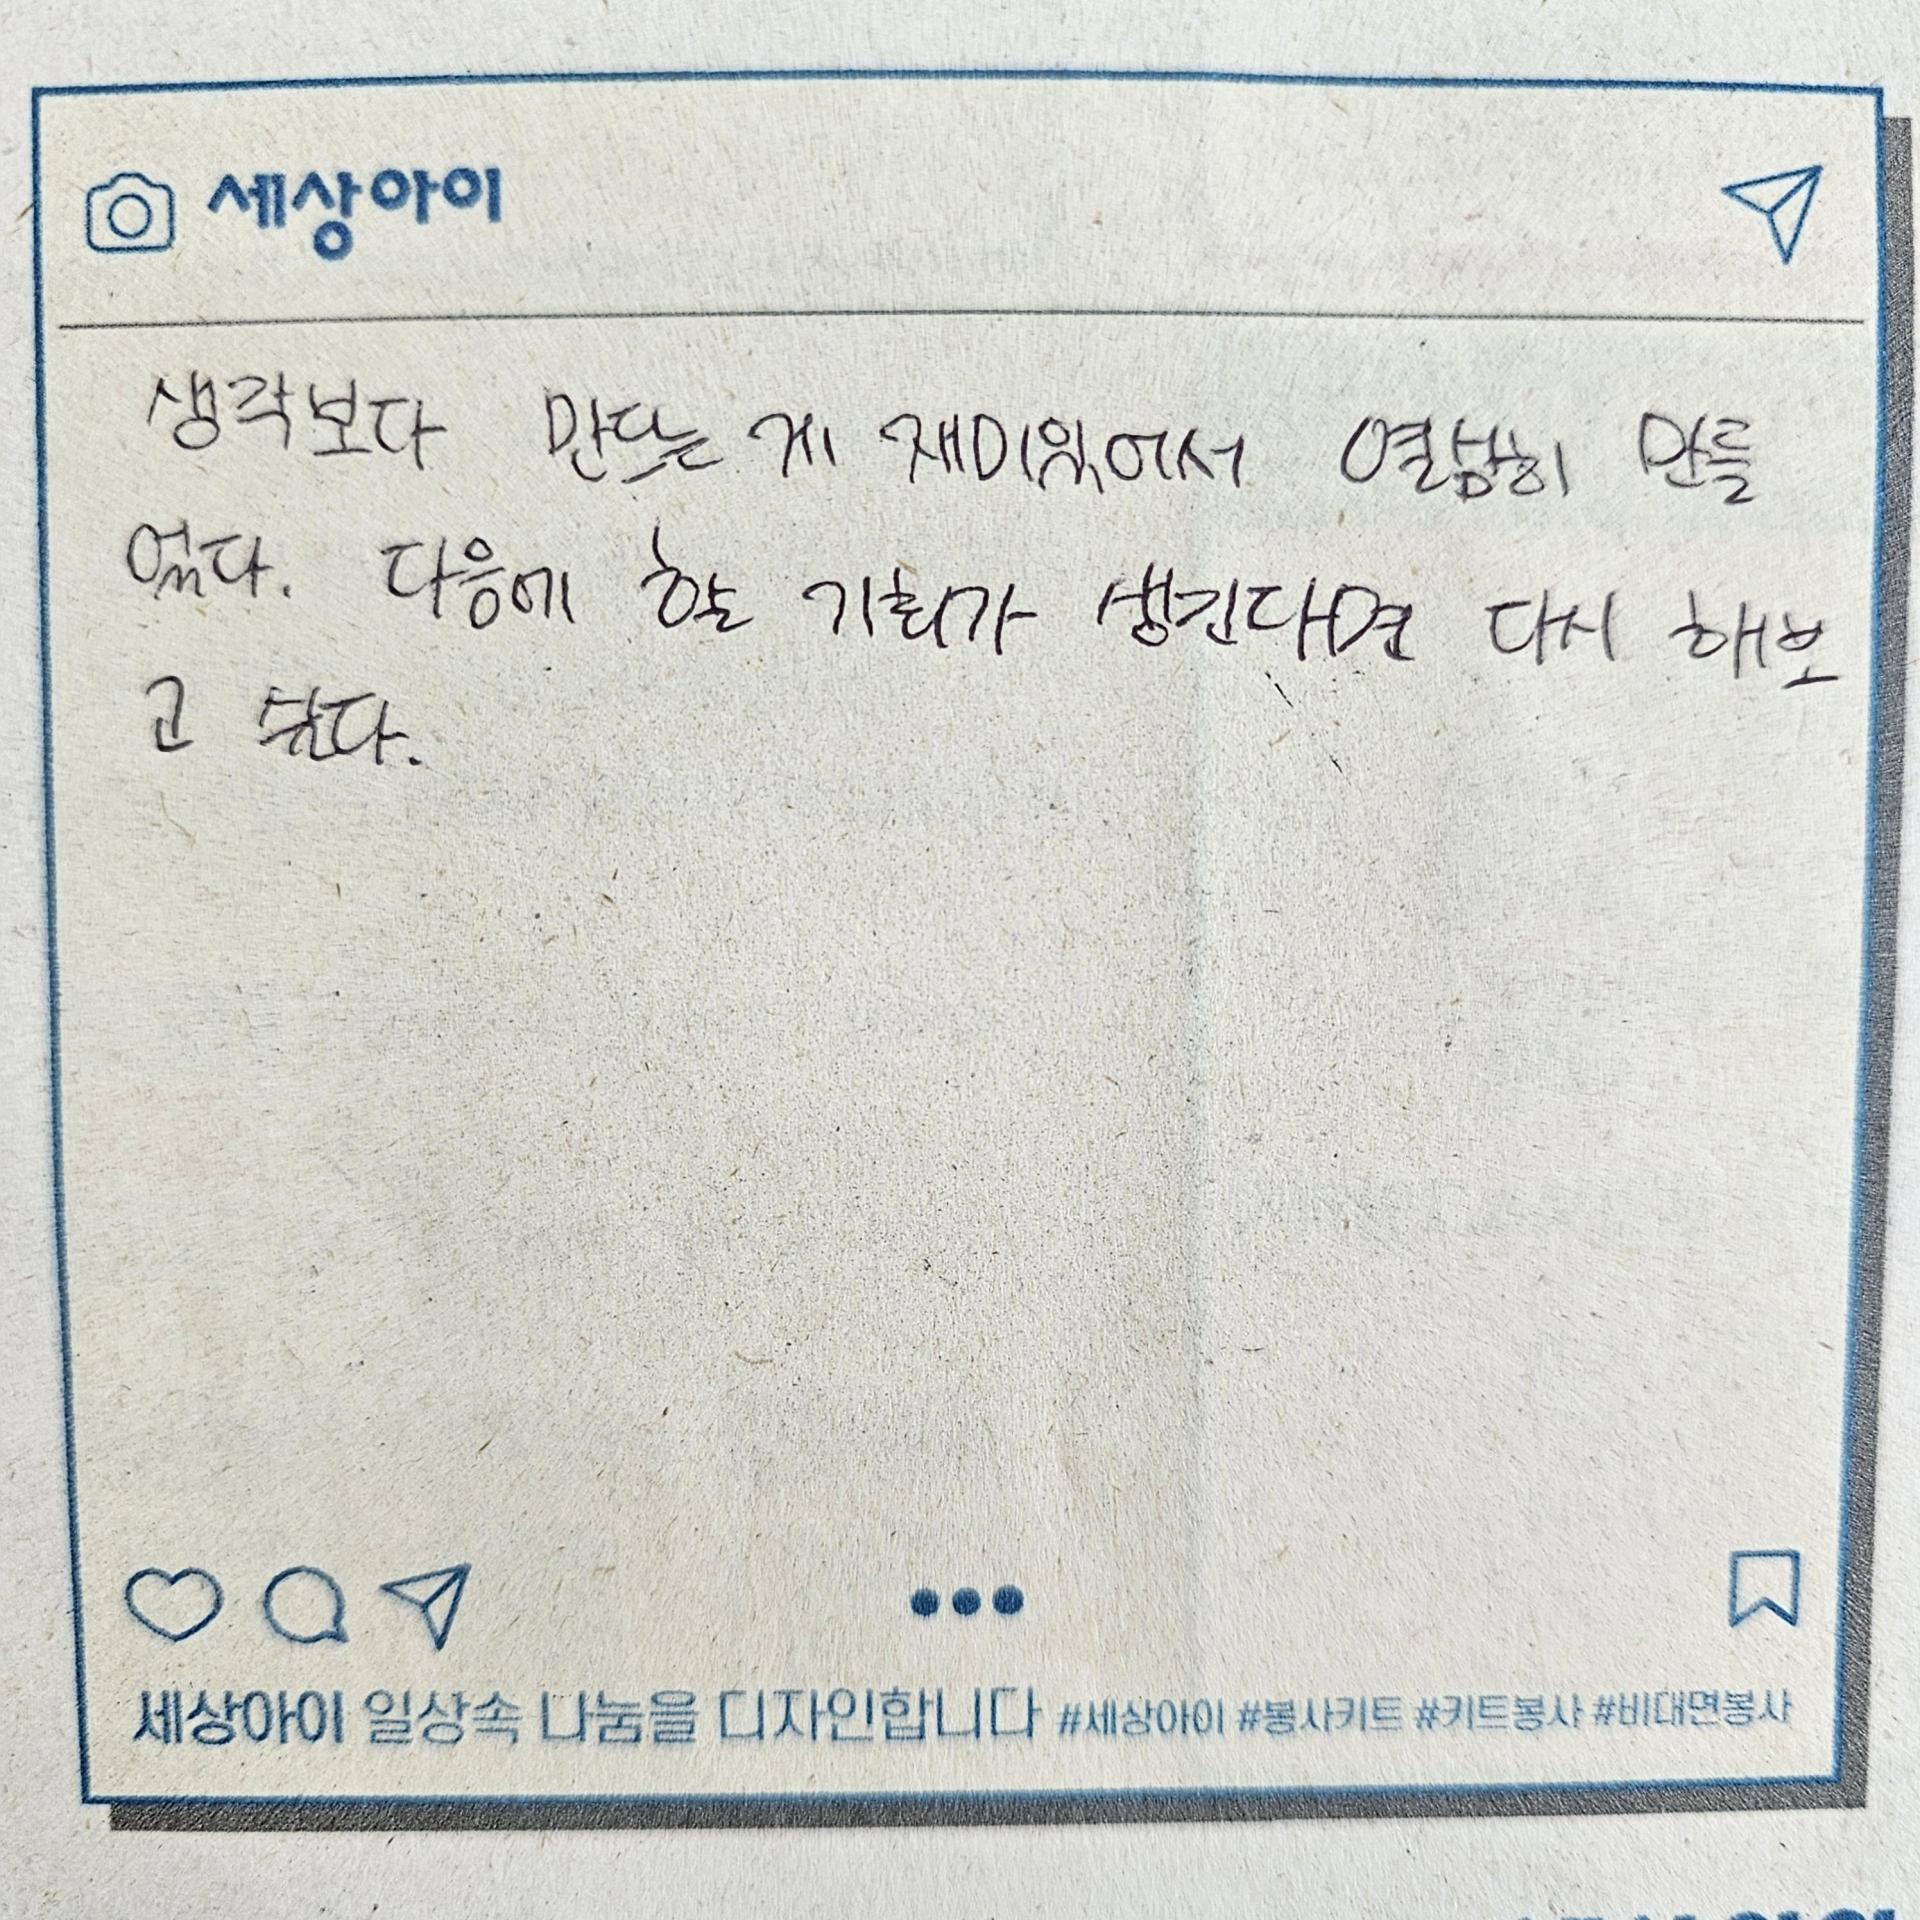 세상아이
생각보다 만드는 게 재미있어서 열심히 만들
었다. 다음에 할 기회가 생긴다면 다시 해보
고 싶다.
세상아이 일상속 나눔을 디자인합니다 #세상아이 #봉사키트 #키트봉사 #비대면봉사